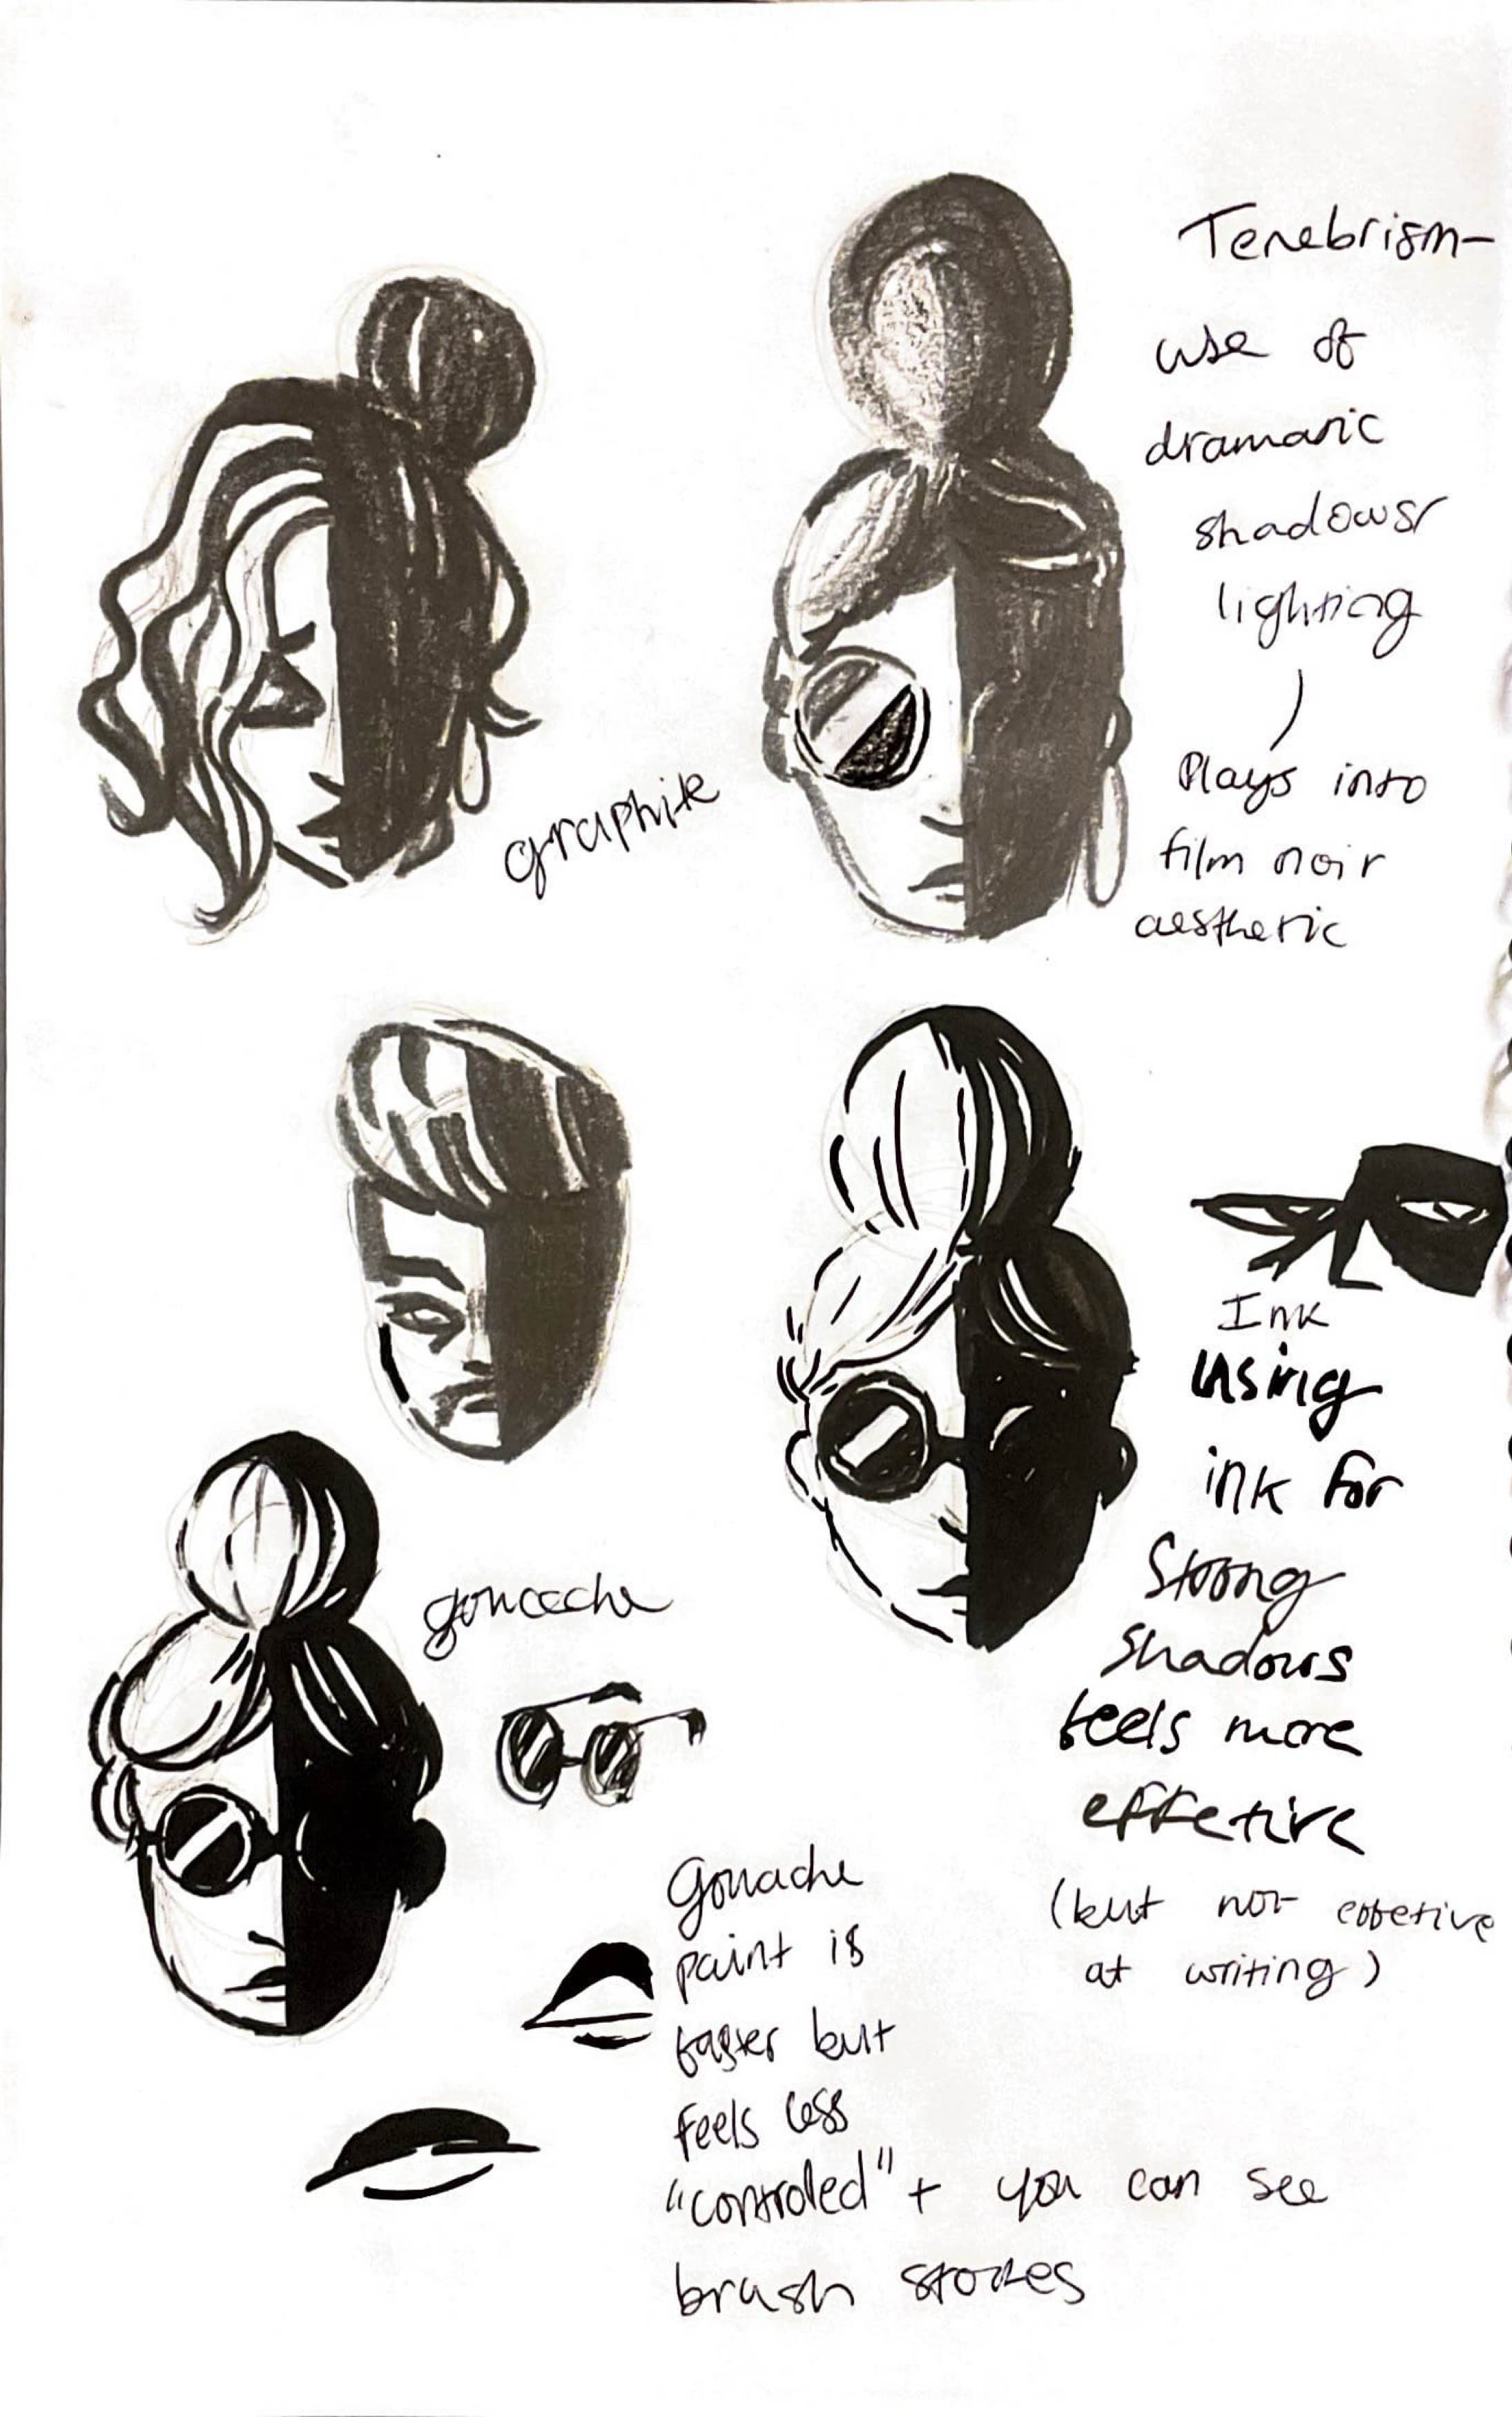 Tenebrism-
use of
dramatic
shadows/
lighting
Plays into
film noir
aesthetic
graphite
Ink
using
ink for
Strong
shadows
feels more
effetive
(but not effetive
at writing)
gouache
Gouache
paint is
faster but
feels less
"controled" + you can see
brush stokes